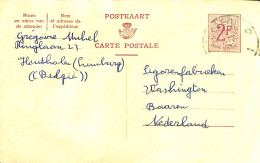 POSTKAART
CARTE POSTALE
Naam en adres van de afzender
Nom et adresse de l'expéditeur
2F
Gregoire Michel
Ringlaan 23
Houthalen (Limburg)
(België)
Sigarenfabrieken
Washington
Baaren
Nederland